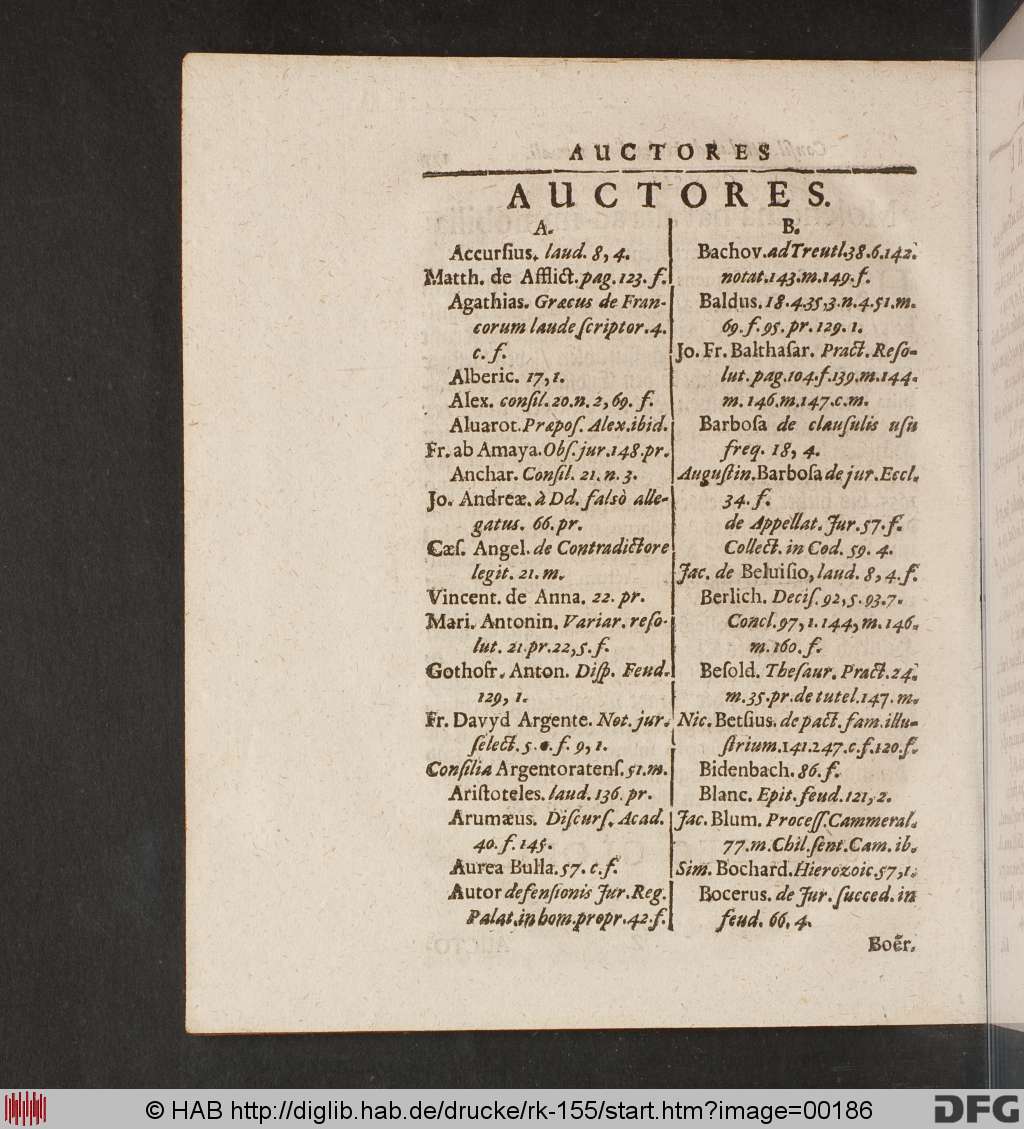 AUCTORES
AUCTORES.
A.
Accurſius. laud. 8, 4.
Matth. de Afflict. pag. 123. f.
Agathias. Græcus de Fran-
corum laude ſcriptor. 4.
c. f.
Alberic. 17, 1.
Alex. conſil. 20. n. 2, 69. f.
Aluarot. Præpoſ. Alex. ibid.
Fr. ab Amaya. Obſ. jur. 148. pr.
Anchar. Conſil. 21. n. 3.
Jo. Andreæ. à Dd. falsò alle-
gatus. 66. pr.
Cæſ. Angel. de Contradictore
legit. 21. m.
Vincent. de Anna. 22. pr.
Mari. Antonin. Variar. reſo-
lut. 21. pr. 22, 5. f.
Gothofr. Anton. Diſp. Feud.
129, 1.
Fr. Davyd Argente. Not. jur.
ſelect. 5. f. 9, 1.
Conſilia Argentoratenſ. 51. m.
Ariſtoteles. laud. 136. pr.
Arumæus. Diſcurſ. Acad.
40. f. 145.
Aurea Bulla. 57. c. f.
Autor defenſionis Jur. Reg.
Palat. in hom. propr. 42. f.
B.
Bachov. ad Treutl. 38. 6. 142.
notat. 143. m. 149. f.
Baldus. 18. 4. 35, 3. n. 4. 51. m.
69. f. 95. pr. 129. 1.
Jo. Fr. Balthaſar. Pract. Reſo-
lut. pag. 104. f. 139. m. 144.
m. 146. m. 147. c. m.
Barboſa de clauſulis uſu
freq. 18, 4.
Auguſtin. Barboſa de jur. Eccl.
34. f.
de Appellat. Jur. 57. f.
Collect. in Cod. 59. 4.
Jac. de Beluiſio, laud. 8, 4. f.
Berlich. Deciſ. 92, 5. 93. 7.
Concl. 97, 1. 144, m. 146.
m. 160. f.
Beſold. Theſaur. Pract. 24.
m. 35. pr. de tutel. 147. m.
Nic. Betſius. de pact. fam. illu-
ſtrium. 141. 247. c. f. 120. f.
Bidenbach. 86. f.
Blanc. Epit. feud. 121, 2.
Jac. Blum. Proceſſ. Cammeral.
77. m. Chil. ſent. Cam. ib.
Sim. Bochard. Hierozoic. 57, 1.
Bocerus. de Jur. ſucced. in
feud. 66. 4.
Boër.
© HAB http://diglib.hab.de/drucke/rk-155/start.htm?image=00186
DFG